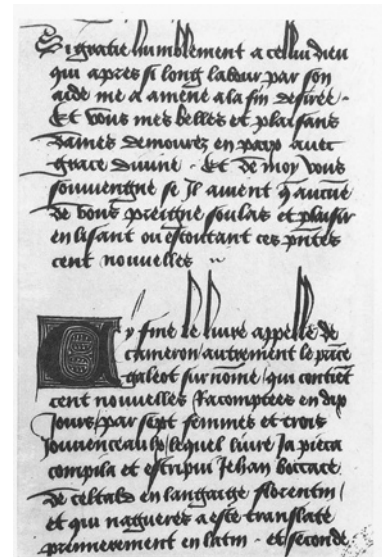 Si gratie humblement a cellui dieu
qui apres si long labour par son
aide me a amene a la fin desiree.
Et vous mes belles et plaisans
dames demourez en paix avec
grace divine. Et de moy vous
souviengne se Il avient q̃ aucũe
de vous preigne soulas et plaisir
en lisant ou escoutant ces p̃ñtes
cent nouvelles
Cy fine le livre appelle de
cameron autrement le prĩce
galeot surnõme qui contiẽt
cent nouvelles Racomptees en dix
Jours par sept femmes et trois
Jouvenceaulx lequel livre Ja pieca
compila et escripvi Jehan boccace
de certald en langaige florentin
et qui nagueres a este translate
premierement en latin. et seconde